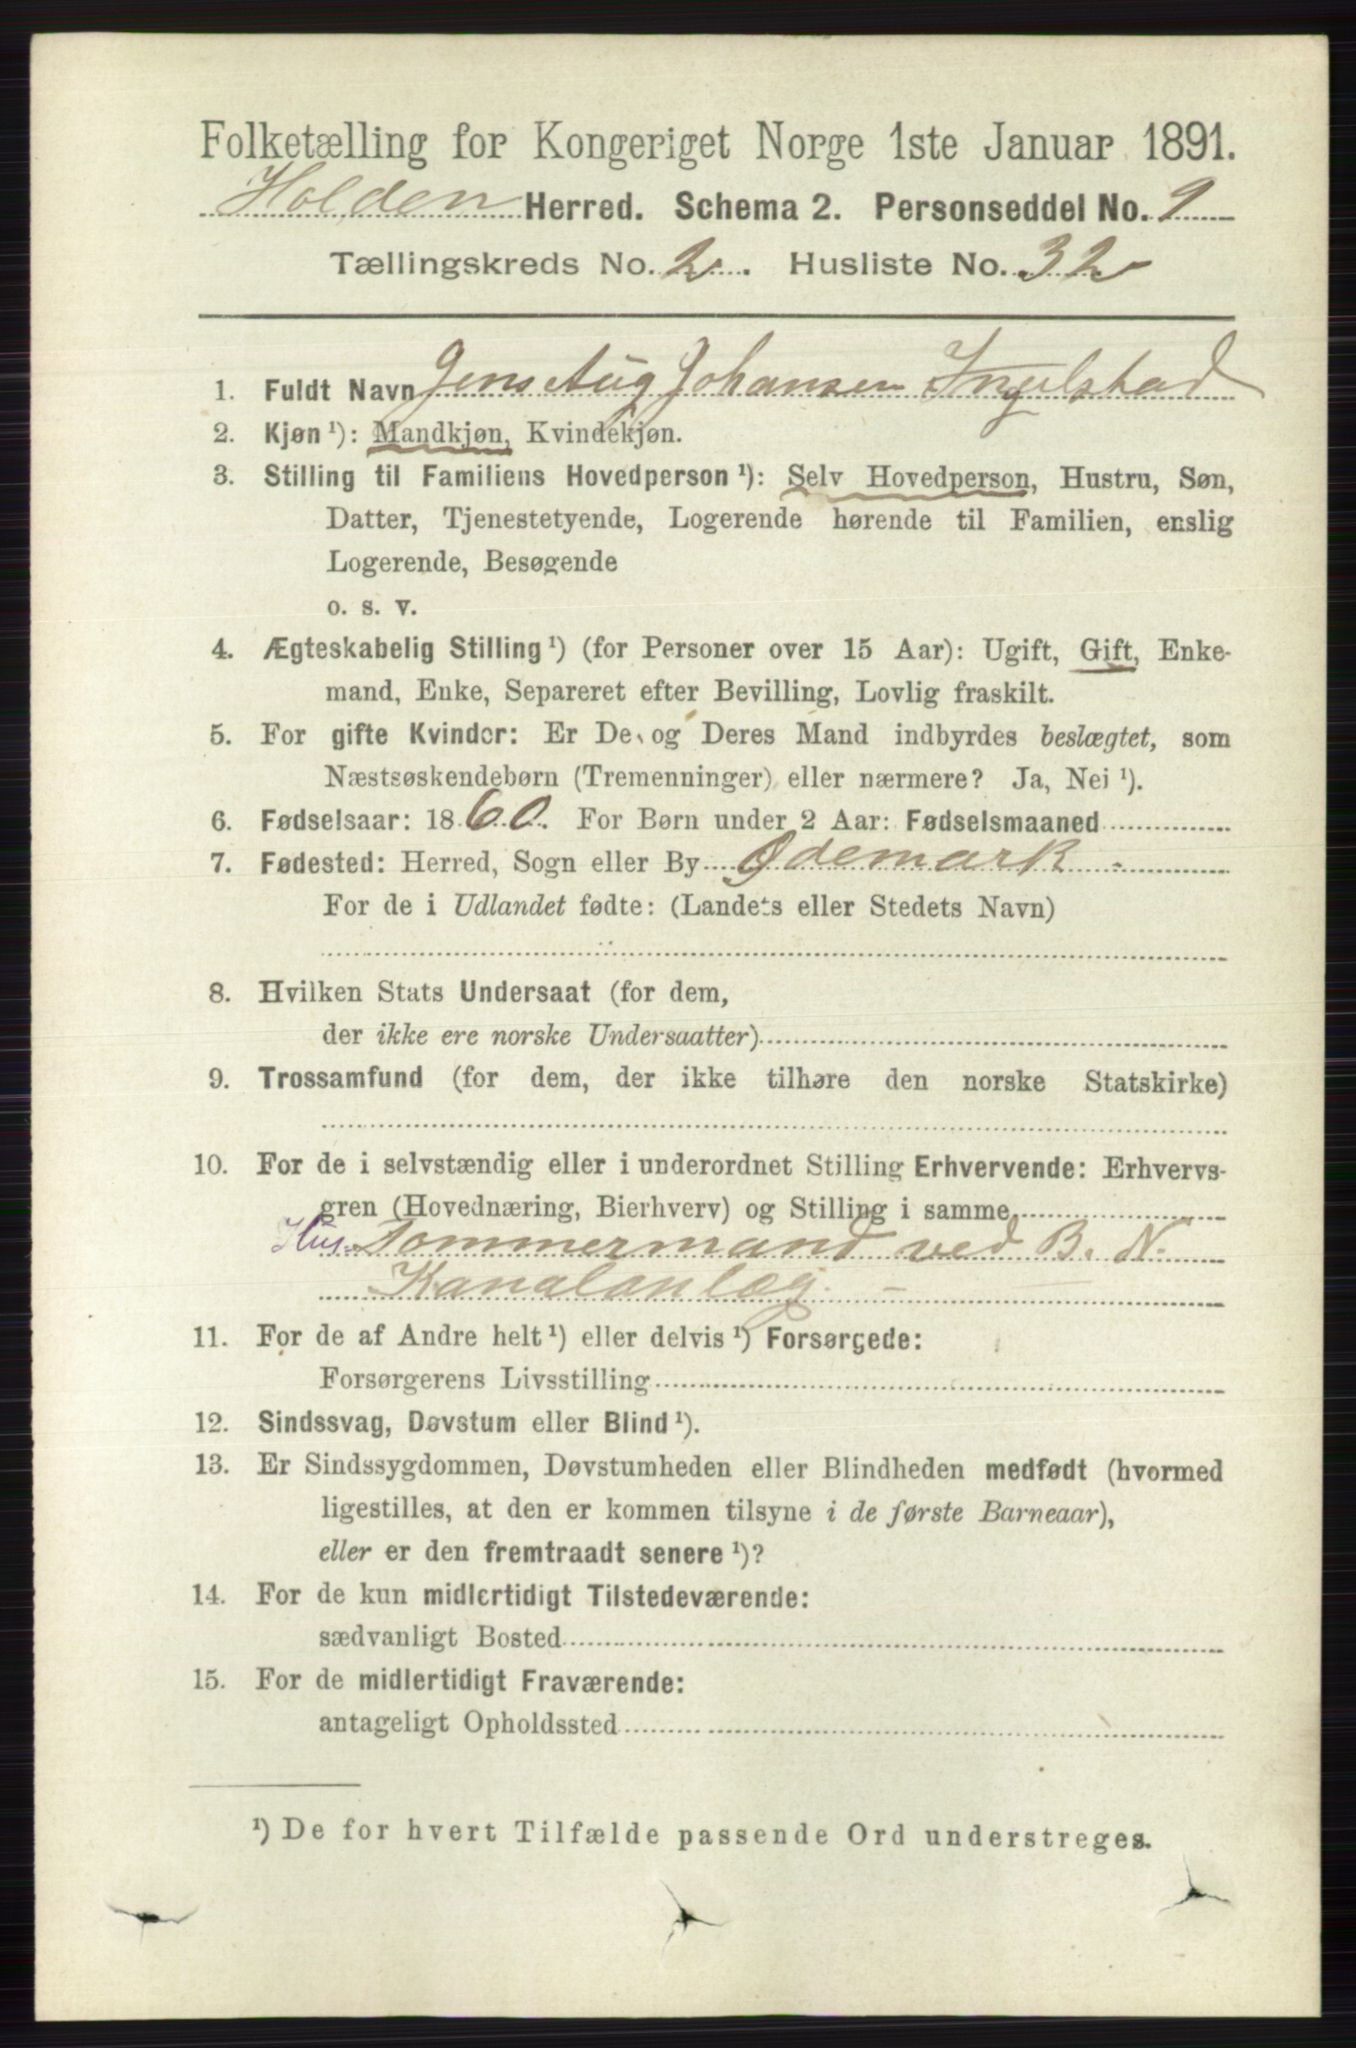 Folketælling for Kongeriget Norge 1ste Januar 1891.
Holden Herred. Schema 2. Personseddel No. 9
Tællingskreds No. 2. Husliste No. 32
1. Fuldt Navn Jens Aug Johansen Ingelstad
2. Kjøn ¹): Mandkjøn, Kvindekjøn.
3. Stilling til Familiens Hovedperson ¹): Selv Hovedperson, Hustru, Søn,
Datter, Tjenestetyende, Logerende hørende til Familien, enslig
Logerende, Besøgende
o. s. v.
4. Ægteskabelig Stilling ¹) (for Personer over 15 Aar): Ugift, Gift, Enke-
mand, Enke, Separeret efter Bevilling, Lovlig fraskilt.
5. For gifte Kvinder: Er De og Deres Mand indbyrdes beslægtet, som
Næstsøskendebørn (Tremenninger) eller nærmere? Ja, Nei ¹).
6. Fødselsaar: 1860. For Børn under 2 Aar: Fødselsmaaned
7. Fødested: Herred, Sogn eller By Ødemark -
For de i Udlandet fødte: (Landets eller Stedets Navn)
8. Hvilken Stats Undersaat (for dem,
der ikke ere norske Undersaatter)
9. Trossamfund (for dem, der ikke tilhøre den norske Statskirke)
10. For de i selvstændig eller i underordnet Stilling Erhvervende: Erhvervs-
gren (Hovednæring, Bierhverv) og Stilling i samme
Hus- Tommermand ved B. N.
Kanalanlæg. -
11. For de af Andre helt ¹) eller delvis ¹) Forsørgede:
Forsørgerens Livsstilling
12. Sindssvag, Døvstum eller Blind ¹).
13. Er Sindssygdommen, Døvstumheden eller Blindheden medfødt (hvormed
ligestilles, at den er kommen tilsyne i de første Barneaar),
eller er den fremtraadt senere ¹)?
14. For de kun midlertidigt Tilstedeværende:
sædvanligt Bosted
15. For de midlertidigt Fraværende:
antageligt Opholdssted
¹) De for hvert Tilfælde passende Ord understreges.